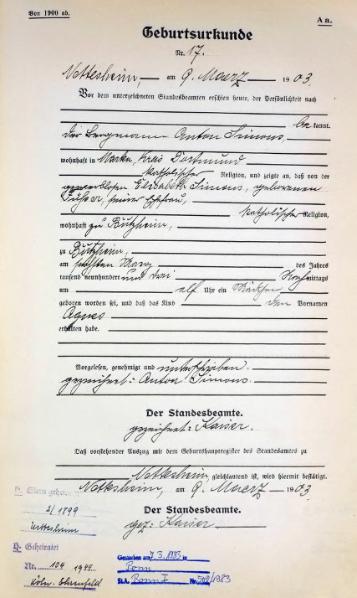 Vor 1900 ab.
A n.
Geburtsurkunde
Nr. 17.
Nettesheim, am 9. Maerz 1903
Vor dem unterzeichneten Standesbeamten erschien heute, der Persönlichkeit nach
be kannt,
der Bergmann Anton Simons,
wohnhaft in Marten, Kreis Dortmund
katholischer Religion, und zeigte an, daß von der
gewerblosen Elisabeth Simons, geborenen
seiner Ehefrau,
katholischer Religion,
wohnhaft zu Bützheim,
zu Bützheim,
am März des Jahres
tausend neunhundert und drei mittags
um elf Uhr ein Mädchen
geboren worden sei, und daß das Kind den Vornamen
Agnes
erhalten habe.
Vorgelesen, genehmigt und unterschrieben.
gezeichnet: Anton Simons.
Der Standesbeamte.
gezeichnet: Kaiser.
Daß vorstehender Auszug mit dem Geburtshauptregister des Standesamtes zu
Nettesheim gleichlautend ist, wird hiermit bestätigt.
Nettesheim, am 9. Maerz 1903
Der Standesbeamte.
gez: Kaiser
Eltern
2/1899
Nettesheim
Geheiratet
Nr. 104
Köln-Ehrenfeld
Gestorben
Bonn
Bonn